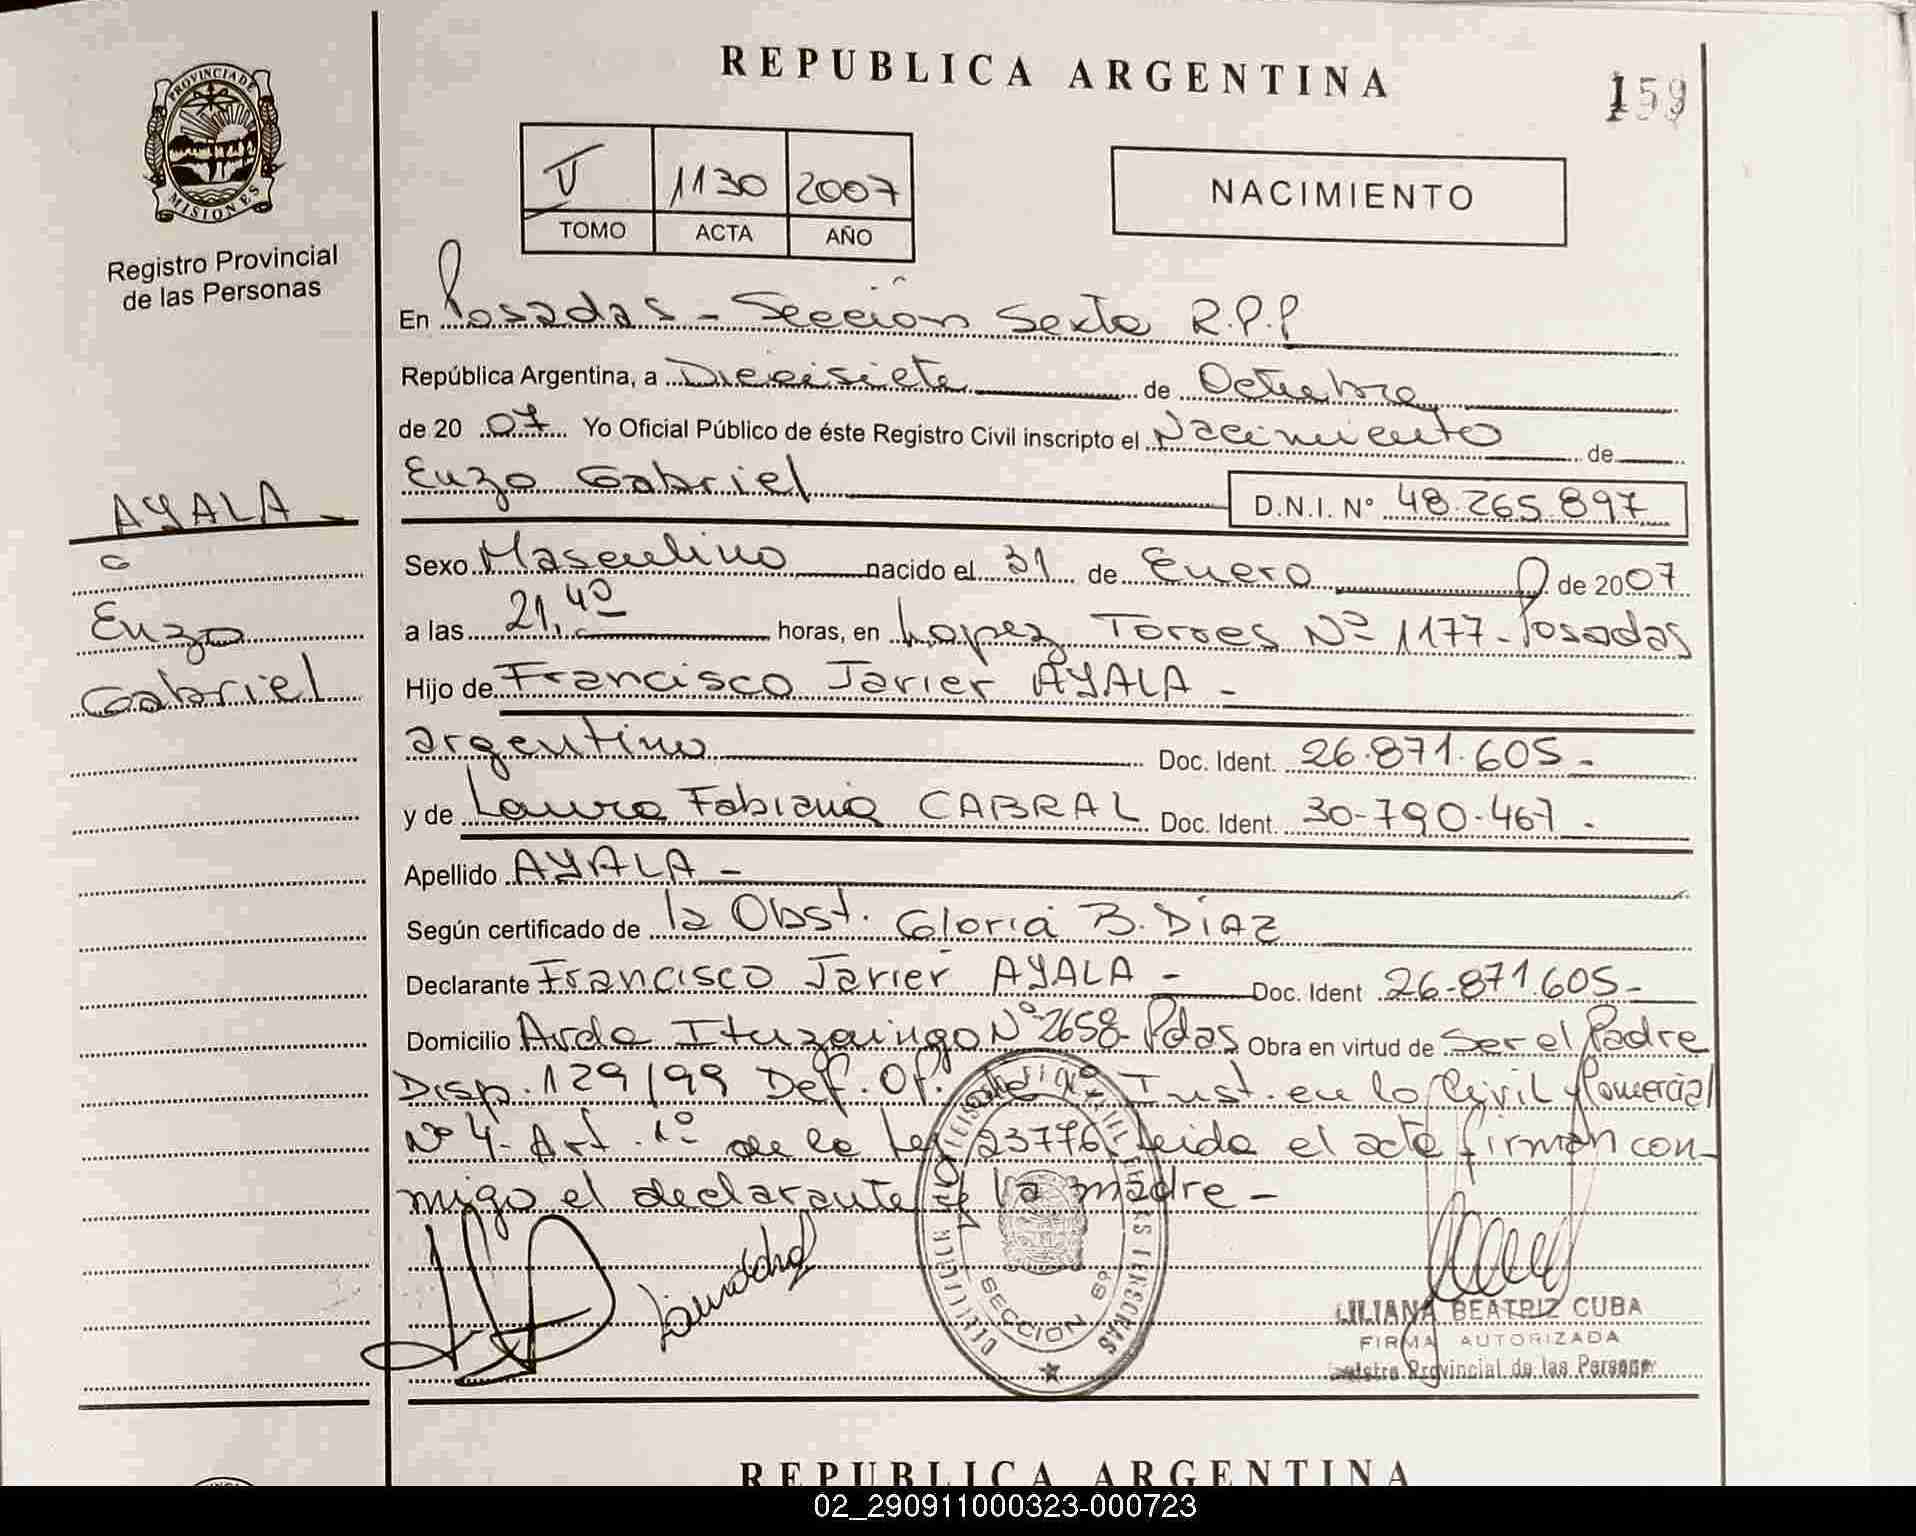 REPUBLICA ARGENTINA
159
PROVINCIA DE
MISIONES
Registro Provincial
de las Personas
V 1130 2007
TOMO ACTA AÑO
NACIMIENTO
En Posadas - Sección Sexta R.P.P
República Argentina, a Diecisiete de Octubre
de 20 07 Yo Oficial Público de éste Registro Civil inscripto el Nacimiento de
Enzo Gabriel
D.N.I. Nº 48.265.897
AYALA -
Enzo
Gabriel
Sexo Masculino nacido el 31 de Enero de 2007
a las 21,40 horas, en Lopez Torres Nº 1177 - Posadas
Hijo de Francisco Javier AYALA -
argentino Doc. Ident. 26.871.605 -
y de Laura Fabiana CABRAL Doc. Ident. 30-790-467 -
Apellido AYALA -
Según certificado de la Obst. Gloria B. DíAZ
Declarante Francisco Javier AYALA - Doc. Ident 26-871.605 -
Domicilio Avda Ituzaingo Nº 2658 - Pdas Obra en virtud de Ser el Padre
Disp. 129/99 Def. Of. de 1º Inst. en lo Civil y Comercial
Nº 4 - Art. 1º de la Ley 23776 Leida el acta firman con-
migo el declarante y la madre -
SECCION 6ª
LILIANA BEATRIZ CUBA
FIRMA AUTORIZADA
Registro Provincial de las Personas
REPUBLICA ARGENTINA
02_290911000323-000723